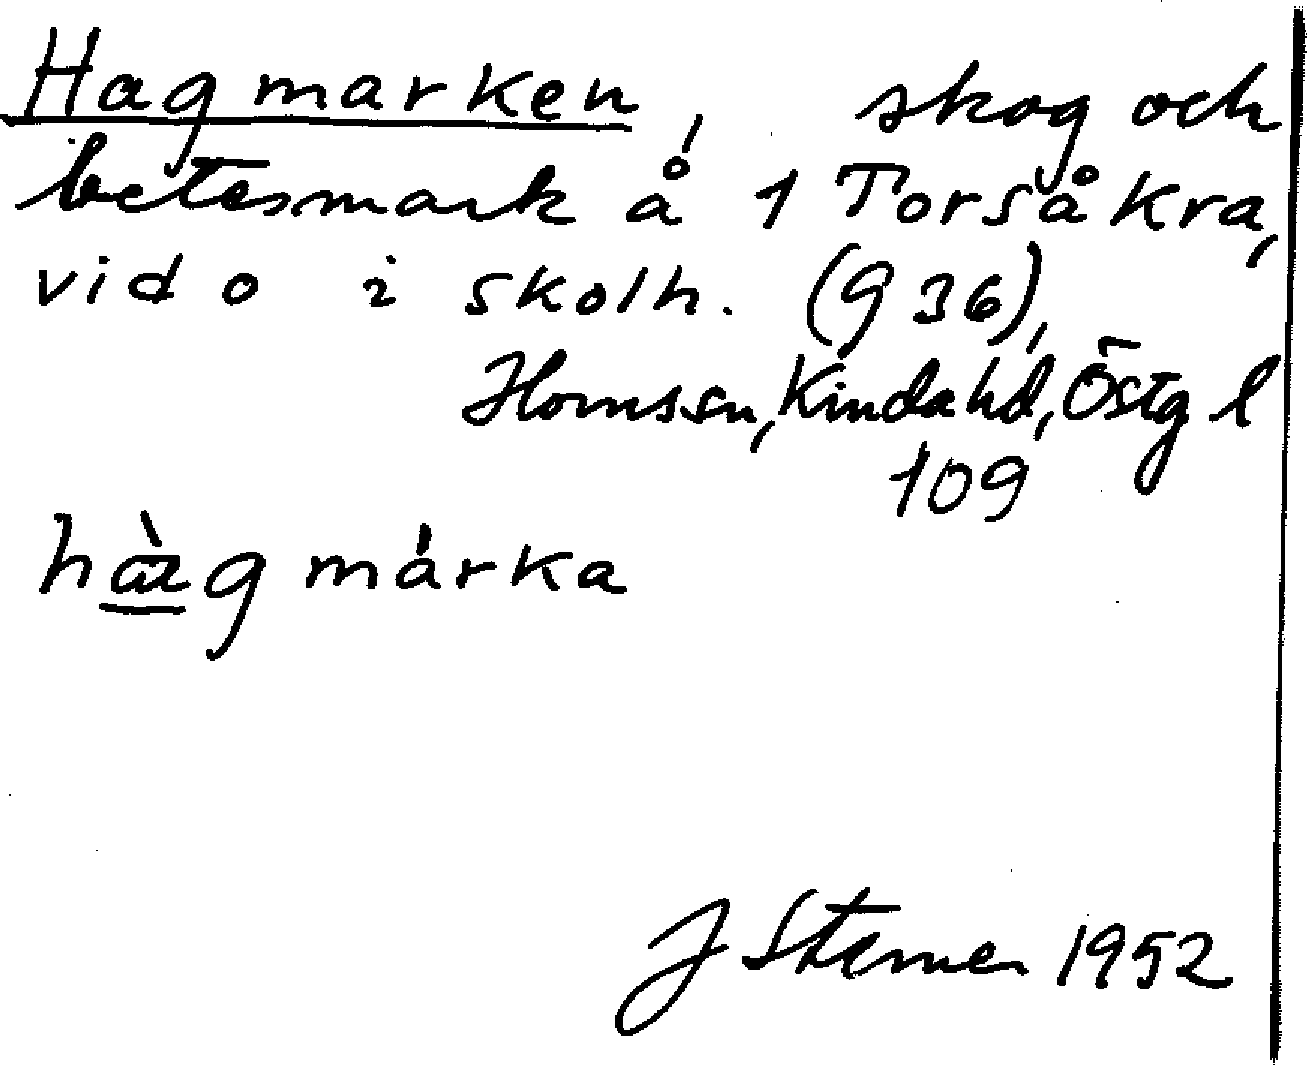 Hagmarken, skog och
betesmark å 1 Torsåkra,
vid o i skolh. (936),
Horns sn, Kinda hd, Östg l
109
hàg márka
J Sterner 1952